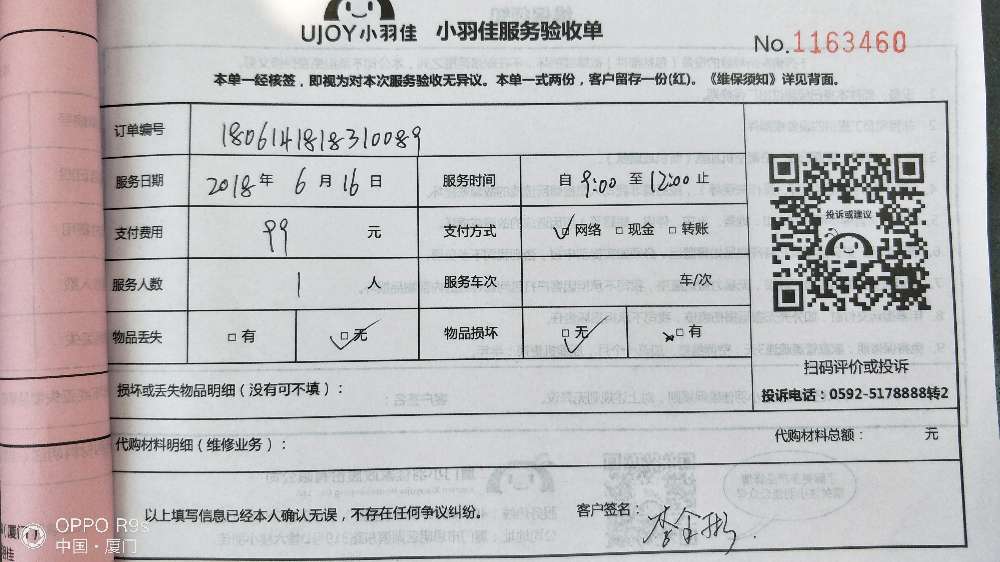 UJOY小羽佳 小羽佳服务验收单
No.1163460
本单一经核签，即视为对本次服务验收无异议。本单一式两份，客户留存一份(红)。《维保须知》详见背面。
订单编号 1806141818310089
服务日期 2018 年 6 月 16 日 服务时间 自 9:00 至 12:00 止
支付费用 99 元 支付方式 ☑ 网络 □ 现金 □ 转账
服务人数 1 人 服务车次 车/次
物品丢失 □ 有 ☑ 无 物品损坏 ☑ 无 □ 有
投诉或建议
扫码评价或投诉
投诉电话：0592-5178888转2
损坏或丢失物品明细（没有可不填）：
代购材料明细（维修业务）： 代购材料总额： 元
以上填写信息已经本人确认无误，不存在任何争议纠纷。 客户签名：
OPPO R9s
中国·厦门